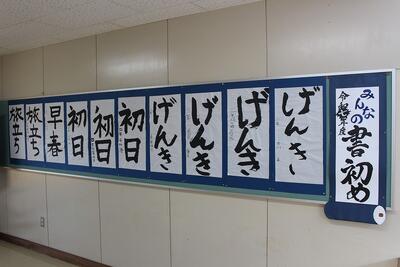 みんなの書初め
げんき
げんき
げんき
げんき
初日
初日
初日
早春
旅立ち
旅立ち